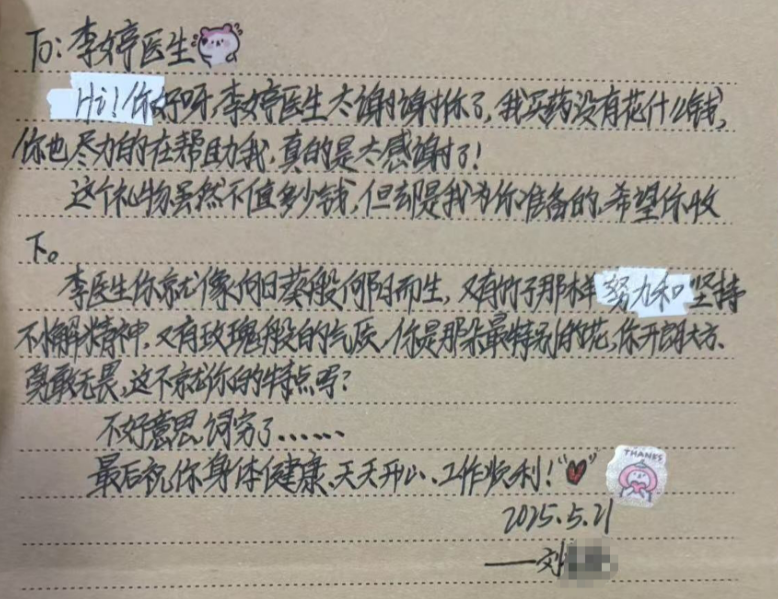 To: 李婷医生
Hi! 你好呀,李婷医生太谢谢你了,我买药没有花什么钱,
你也尽力的在帮助我,真的是太感谢了!
这个礼物虽然不值多少钱,但却是我为你准备的,希望你收
下。
李医生你就像向日葵般向阳而生,又有竹子那样努力和坚持
不懈精神,又有玫瑰般的气质,你是那朵最特别的花,你开朗大方、
勇敢无畏,这不就你的特点吗?
不好意思,词穷了……
最后祝你身体健康、天天开心、工作顺利!
THANKS
2025.5.21
——刘